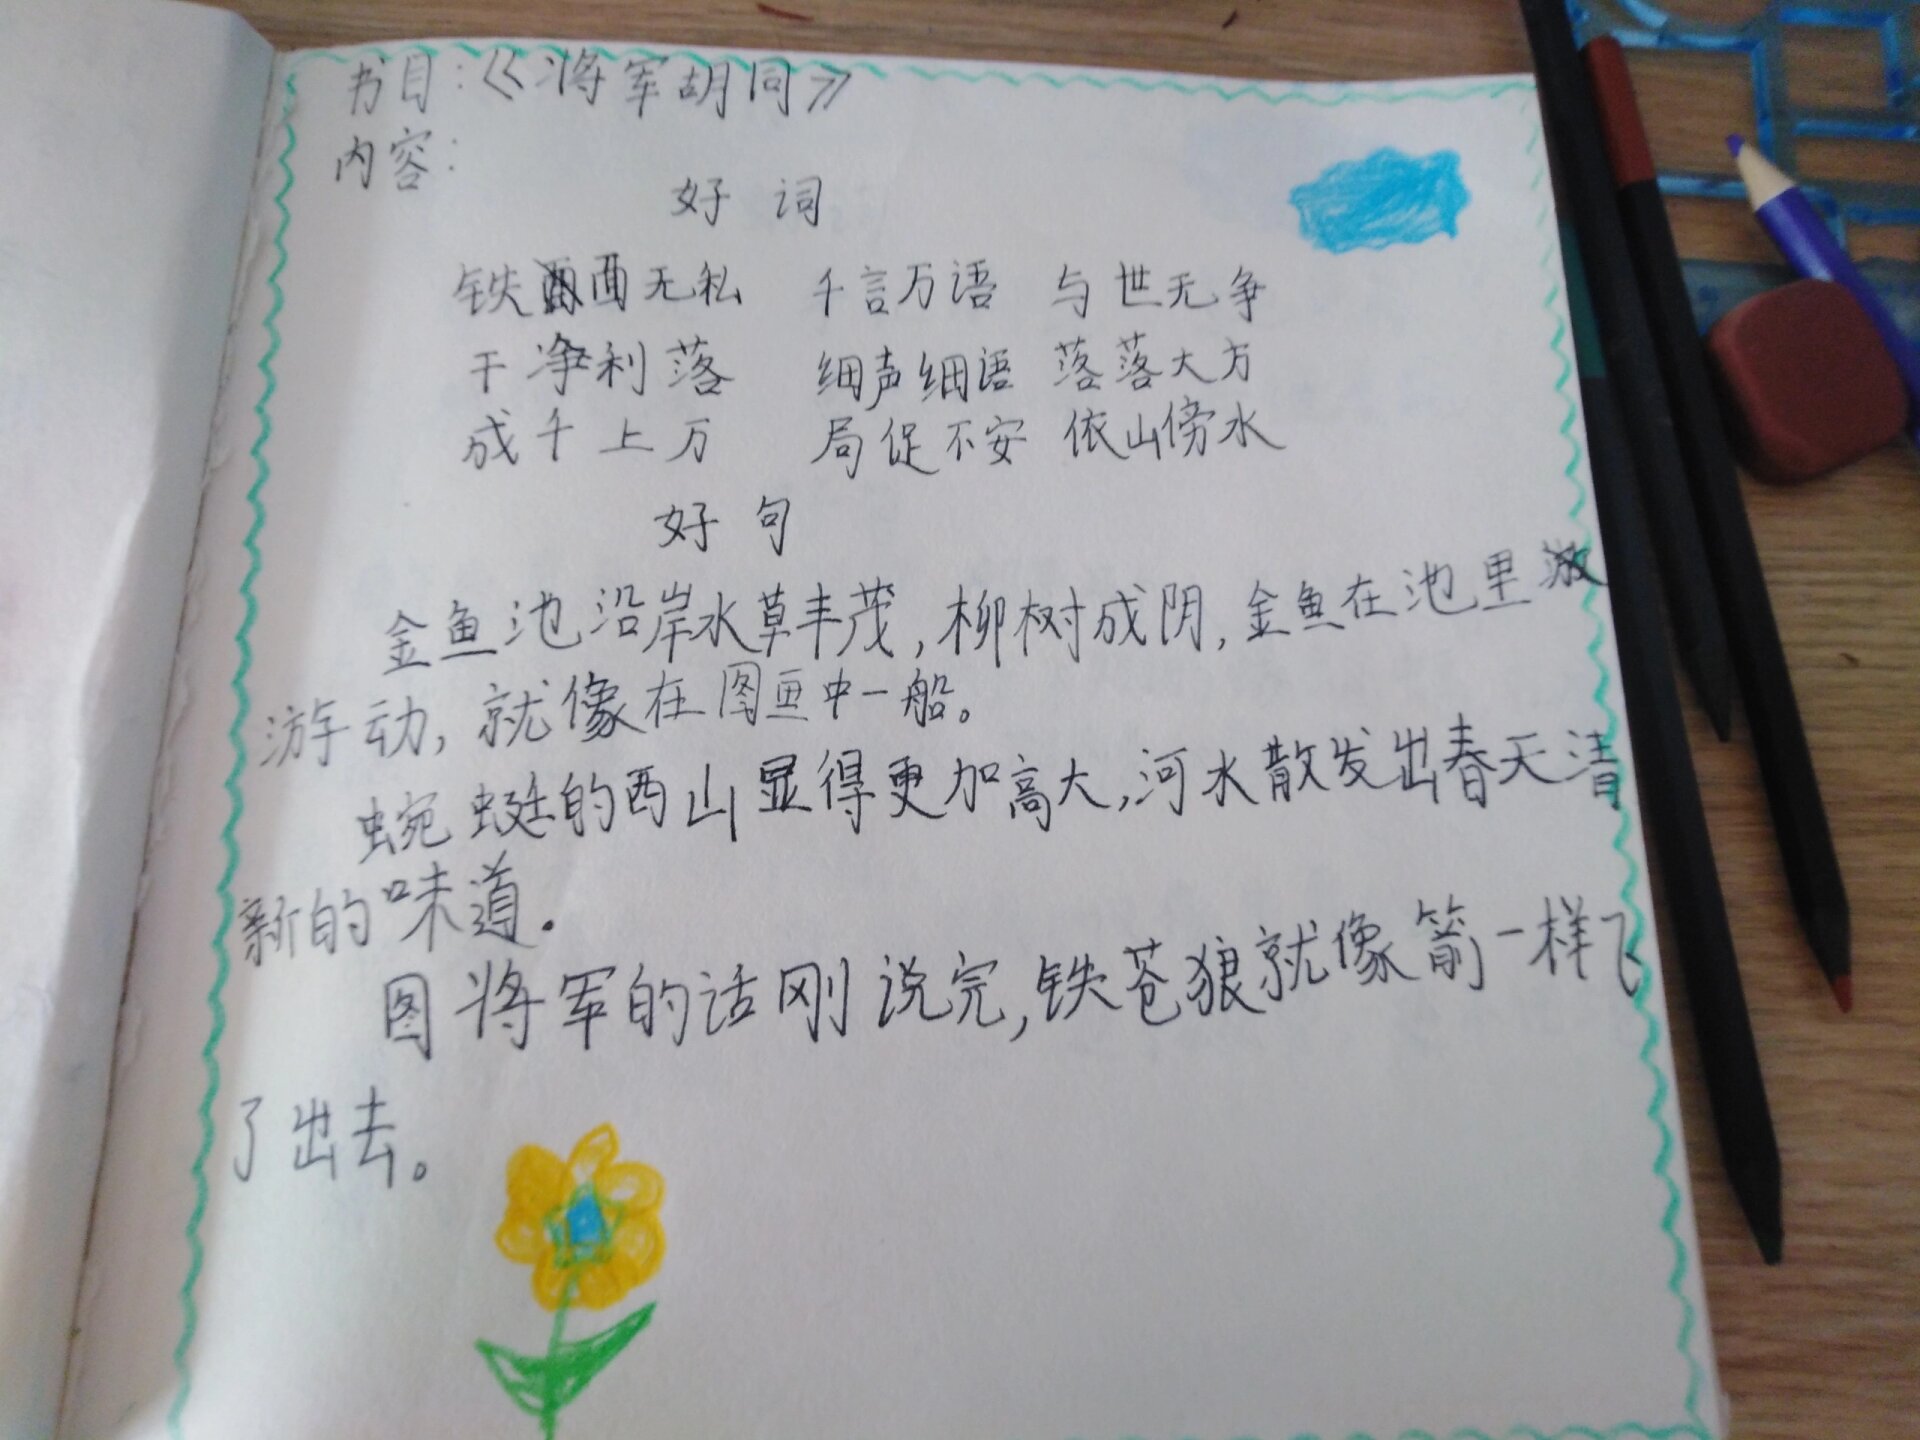 书目：《将军胡同》
内容：
好词
铁面无私 千言万语 与世无争
干净利落 细声细语 落落大方
成千上万 局促不安 依山傍水
好句
金鱼池沿岸水草丰茂，柳树成阴，金鱼在池里
游动，就像在图画中一般。
蜿蜒的西山显得更加高大，河水散发出春天清
新的味道.
图将军的话刚说完，铁苍狼就像箭一样飞
了出去。